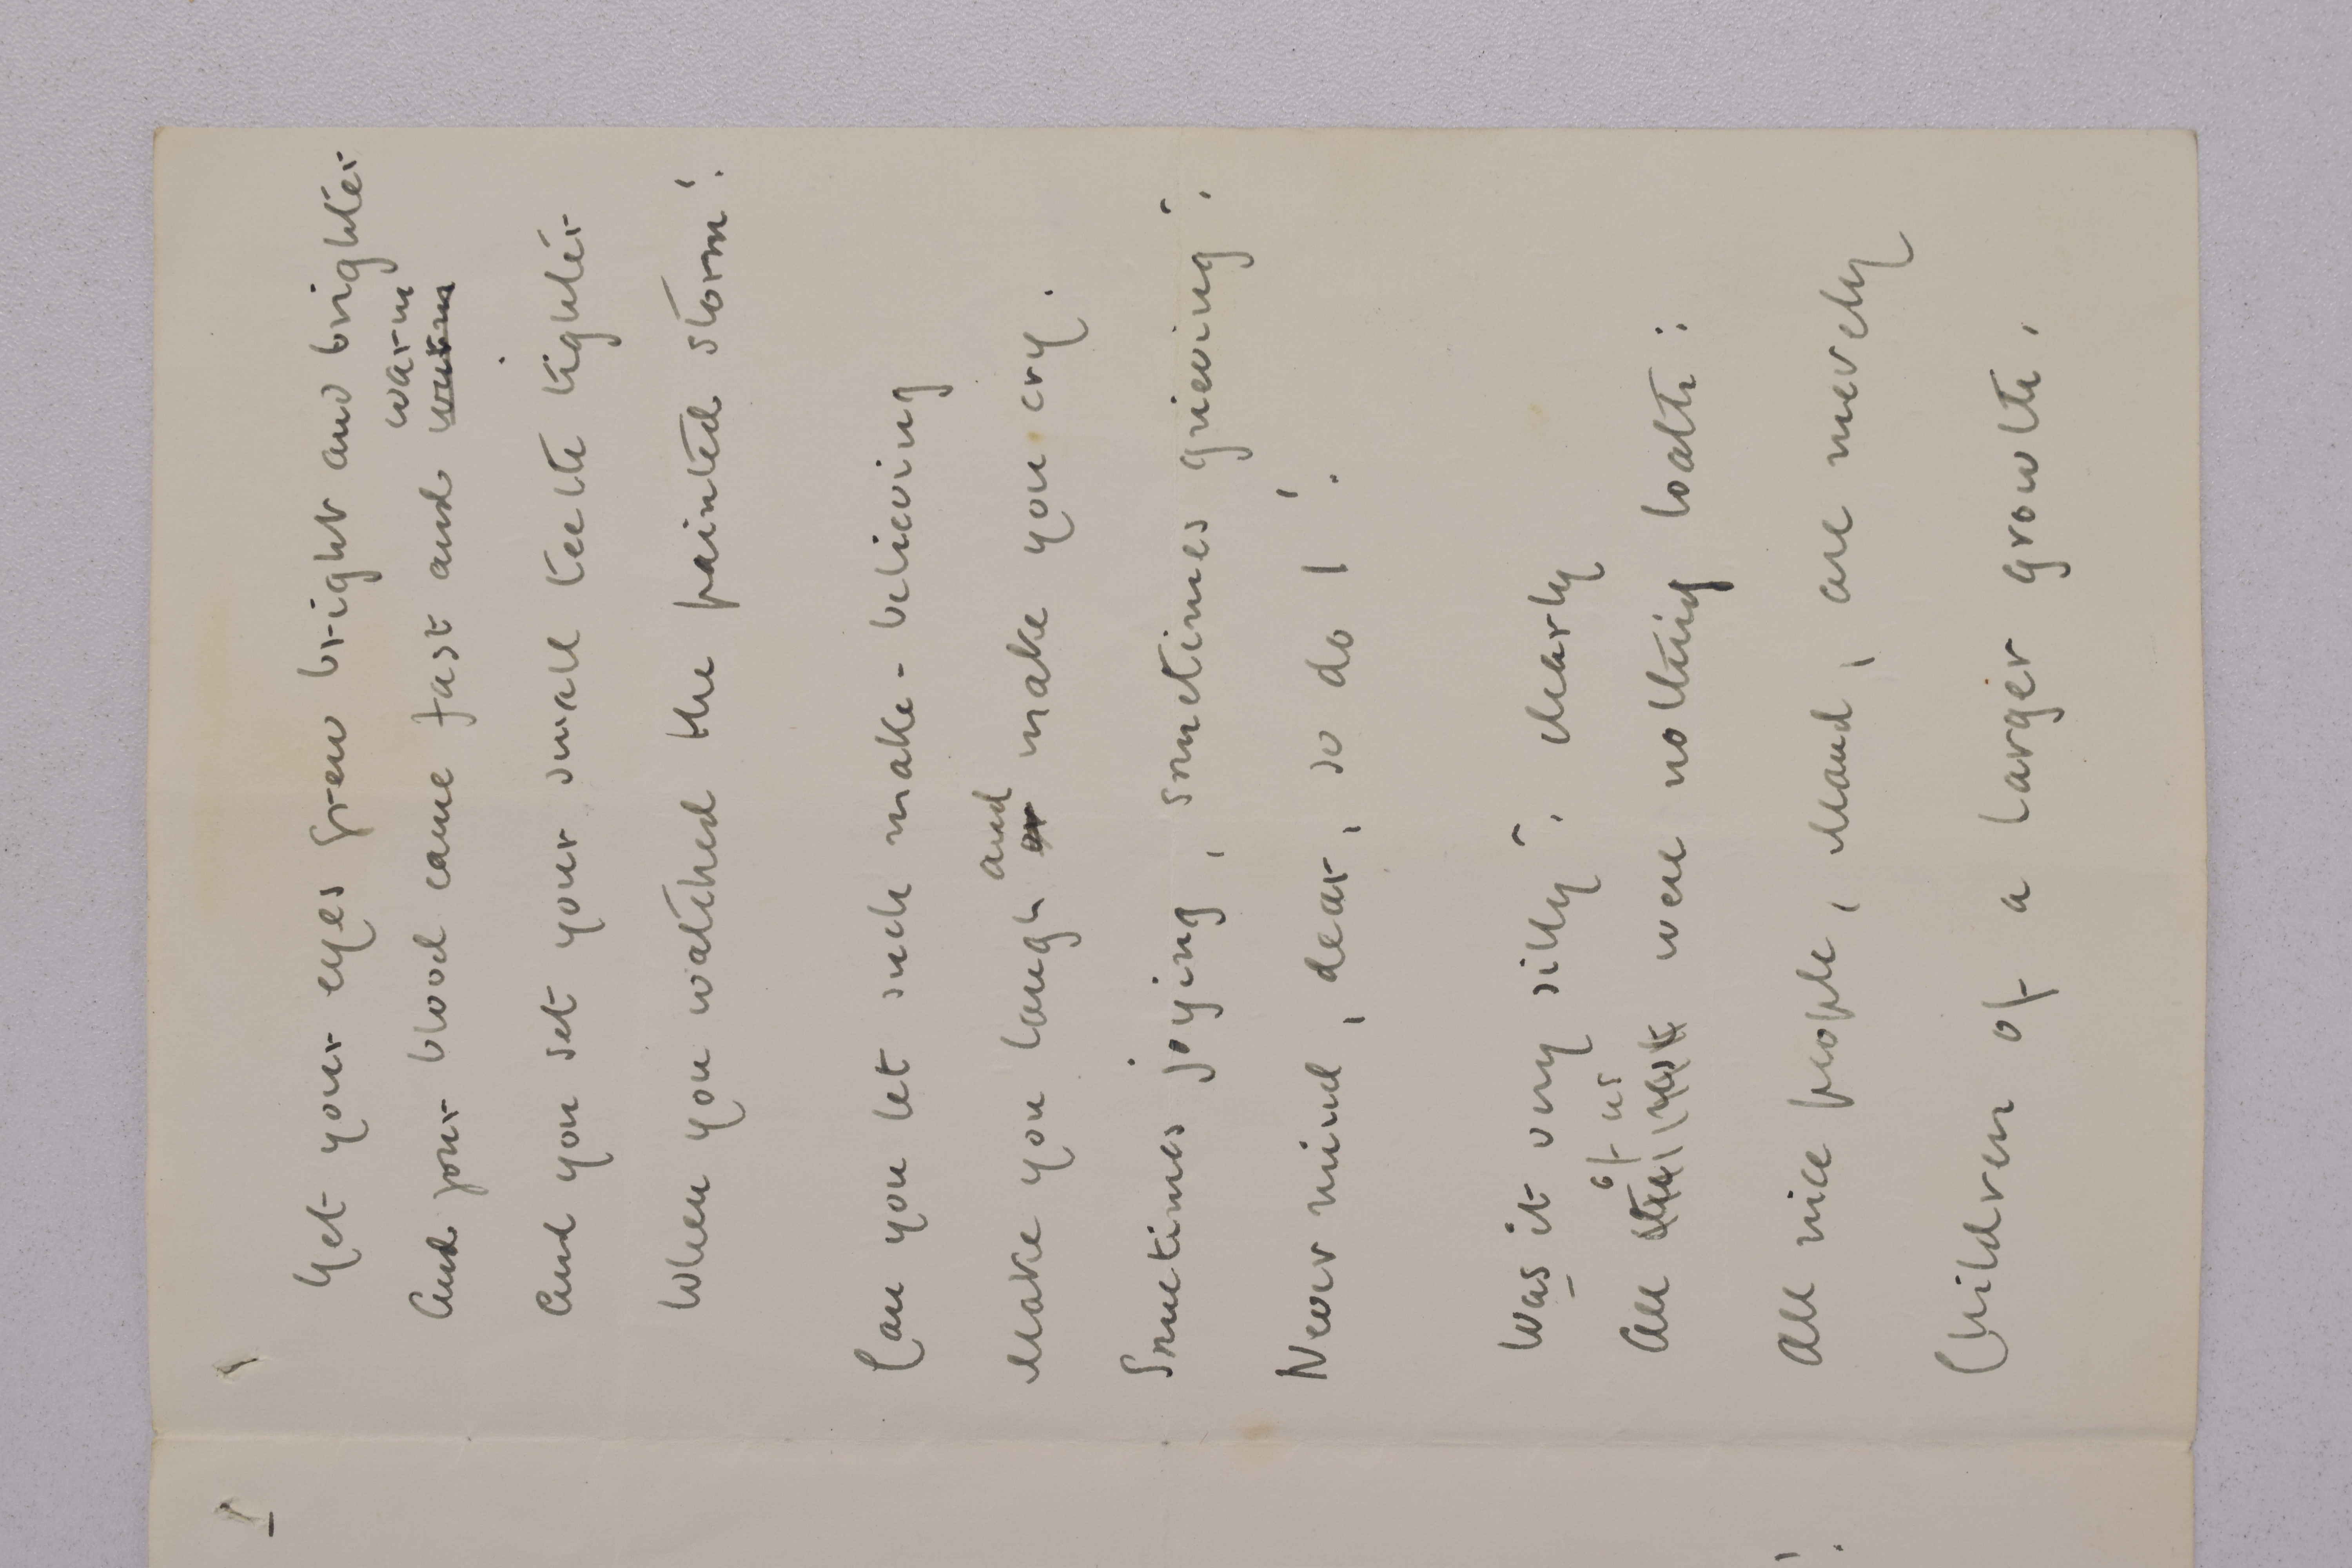 Yet your eyes grew bright and brighter
warm
And your blood came fast and warm
And you set your small teeth tighter
When you watched the painted storm!
Can you let such make-believing
and
Make you laugh or make you cry.
Sometimes joying, sometimes grieving?
Never mind, dear, so do I!
Was it very silly? Clearly
of us
All were nothing loath:
All nice people, Maud, are merely
Children of a larger growth.